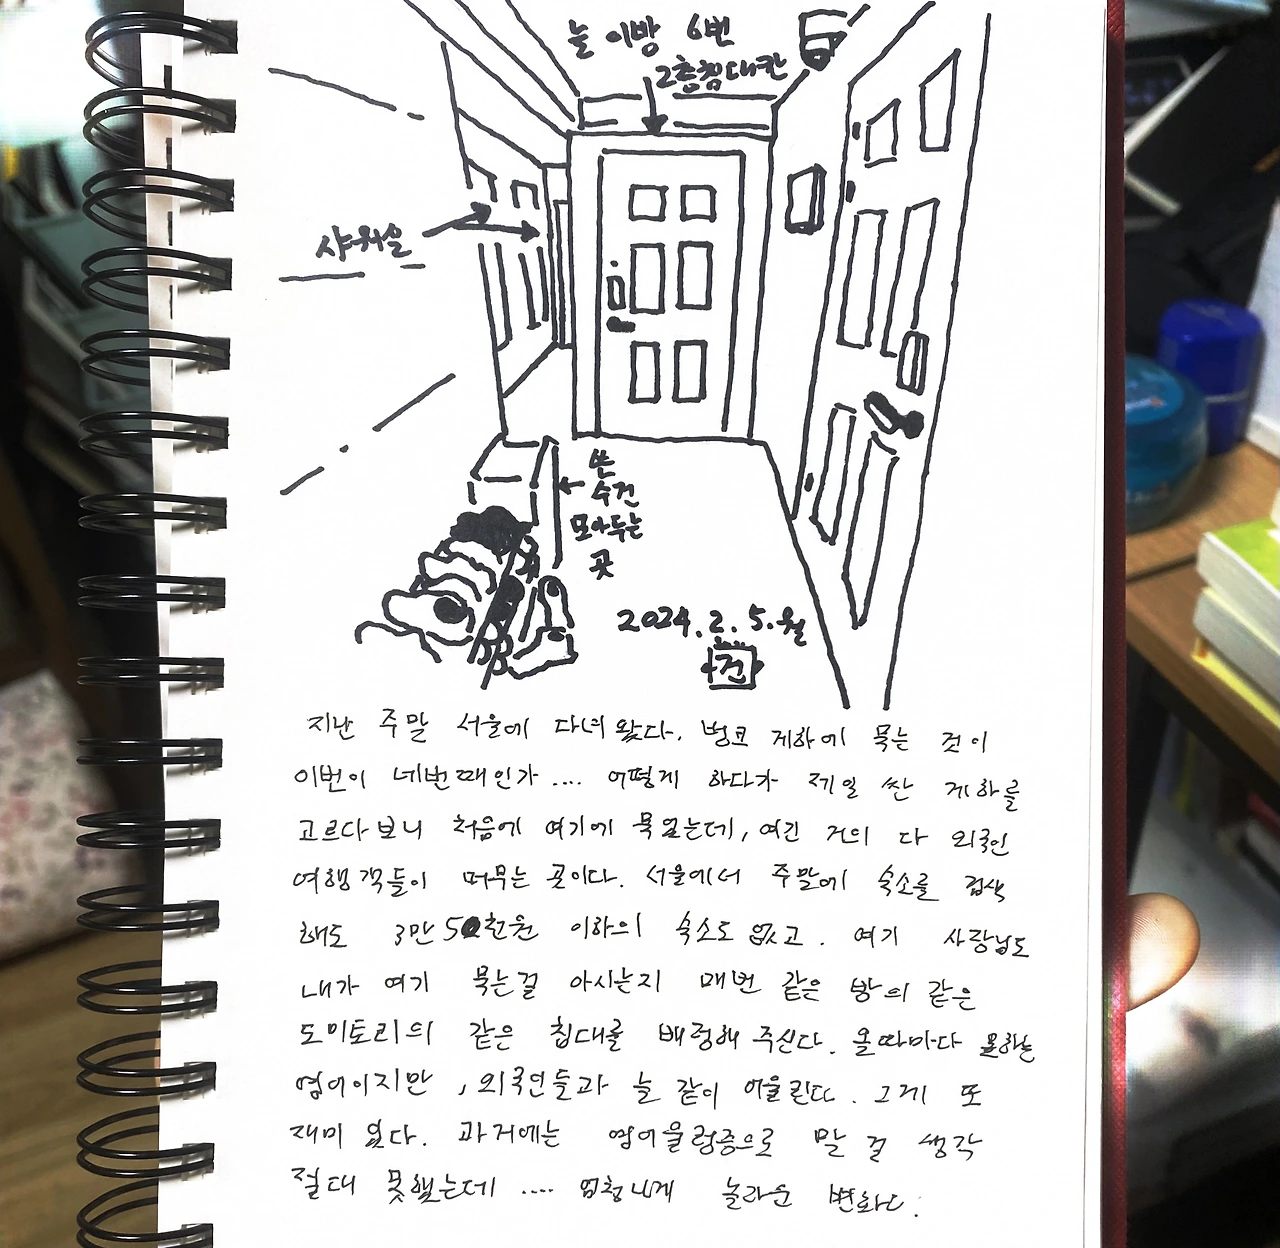 늘 이방 6번
2층침대칸
샤워실
쓴
수건
모아두는
곳
2024. 2. 5. 월
건
지난 주말 서울에 다녀왔다. 벙크 게하에 묵는 것이
이번이 네번때인가.... 어떻게 하다가 제일 싼 게하를
고르다보니 처음에 여기에 묵었는데, 여긴 거의 다 외국인
여행객들이 머무는 곳이다. 서울에서 주말에 숙소를 검색
해도 3만 5천원 이하의 숙소도 없고. 여기 사장님도
내가 여기 묵는걸 아시는지 매번 같은 방의 같은
도미토리의 같은 침대를 배정해 주신다. 올때마다 못하는
영어이지만, 외국인들과 늘 같이 어울린다. 그게 또
재미 있다. 과거에는 영어울렁증으로 말 걸 생각
절대 못했는데.... 엄청나게 놀라운 변화다.